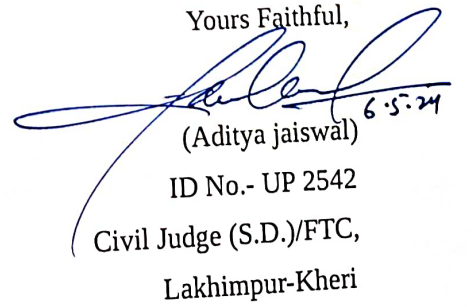 Yours Faithful,
6.5.24
(Aditya jaiswal)
ID No.- UP 2542
Civil Judge (S.D.)/FTC,
Lakhimpur-Kheri